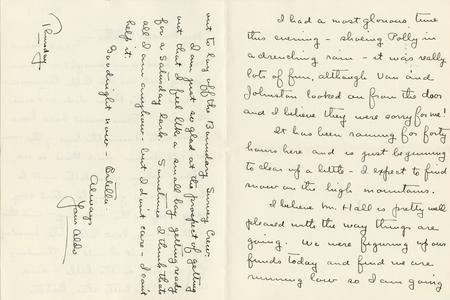 I had a most glorious time
this evening - shoeing Polly in
a drenching rain - it was really
lots of fun, although Van and
Johnston looked on from the door
and I believe they were sorry for me!
It has been raining for forty
hours here and is just beginning
to clear up a little - I expect to find
snow on the high mountains.
I believe Mr. Hall is pretty well
pleased with the way things are
going. We were figuring up our
funds today and find we are
running low so I am going
out to lay off the Boundary Survey Crew.
I am just so glad at the prospect of getting
out that I feel like a small boy getting ready
for a Saturday lark. Sometimes I think that's
all I am anyhow - but I don't care - I can't
help it.
Goodnight now -
Always
Your Aldo
Thursday